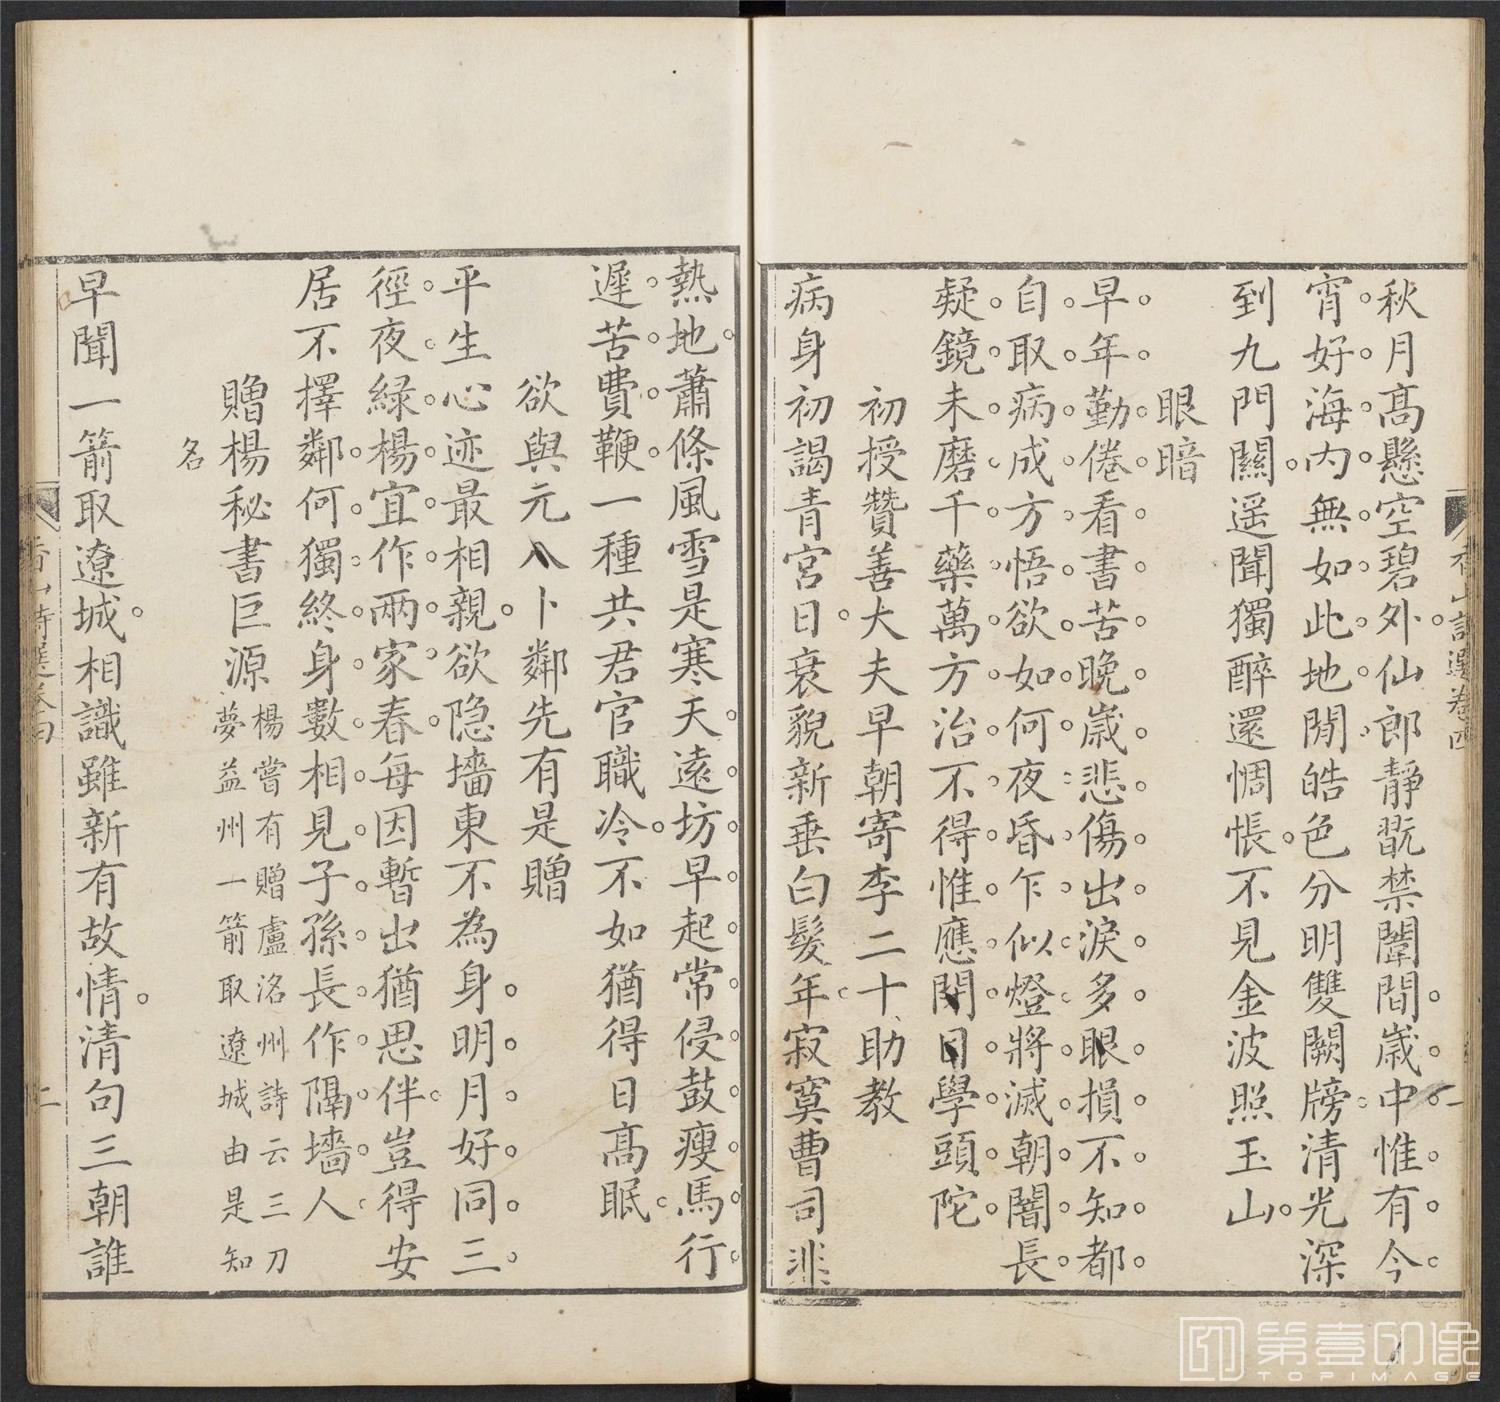 秋月高懸空碧外仙郎靜翫禁闈間歲中惟有今
宵好海內無如此地閒皓色分明雙闕牓清光深
到九門關遥聞獨醉還惆悵不見金波照玉山
眼暗
早年勤倦看書苦晚歲悲傷出淚多眼損不知都
自取病成方悟欲如何夜昏乍似燈將滅朝闇長
疑鏡未磨千藥萬方治不得惟應閉目學頭陀
初授贊善大夫早朝寄李二十助教
病身初謁青宮日衰貌新垂白髮年寂寞曹司非
熱地蕭條風雪是寒天遠坊早起常侵鼓瘦馬行
遲苦費鞭一種共君官職冷不如猶得日高眠
欲與元八卜鄰先有是贈
平生心迹最相親欲隱墻東不為身明月好同三
徑夜緑楊宜作兩家春每因暫出猶思伴豈得安
居不擇鄰何獨終身數相見子孫長作隔墻人
贈楊秘書巨源
楊嘗有贈盧洺州詩云三刀
夢益州一箭取遼城由是知
名
早聞一箭取遼城相識雖新有故情清句三朝誰
香山詩選卷四
二
香山詩選卷四
第壹印像
TOPIMAGE